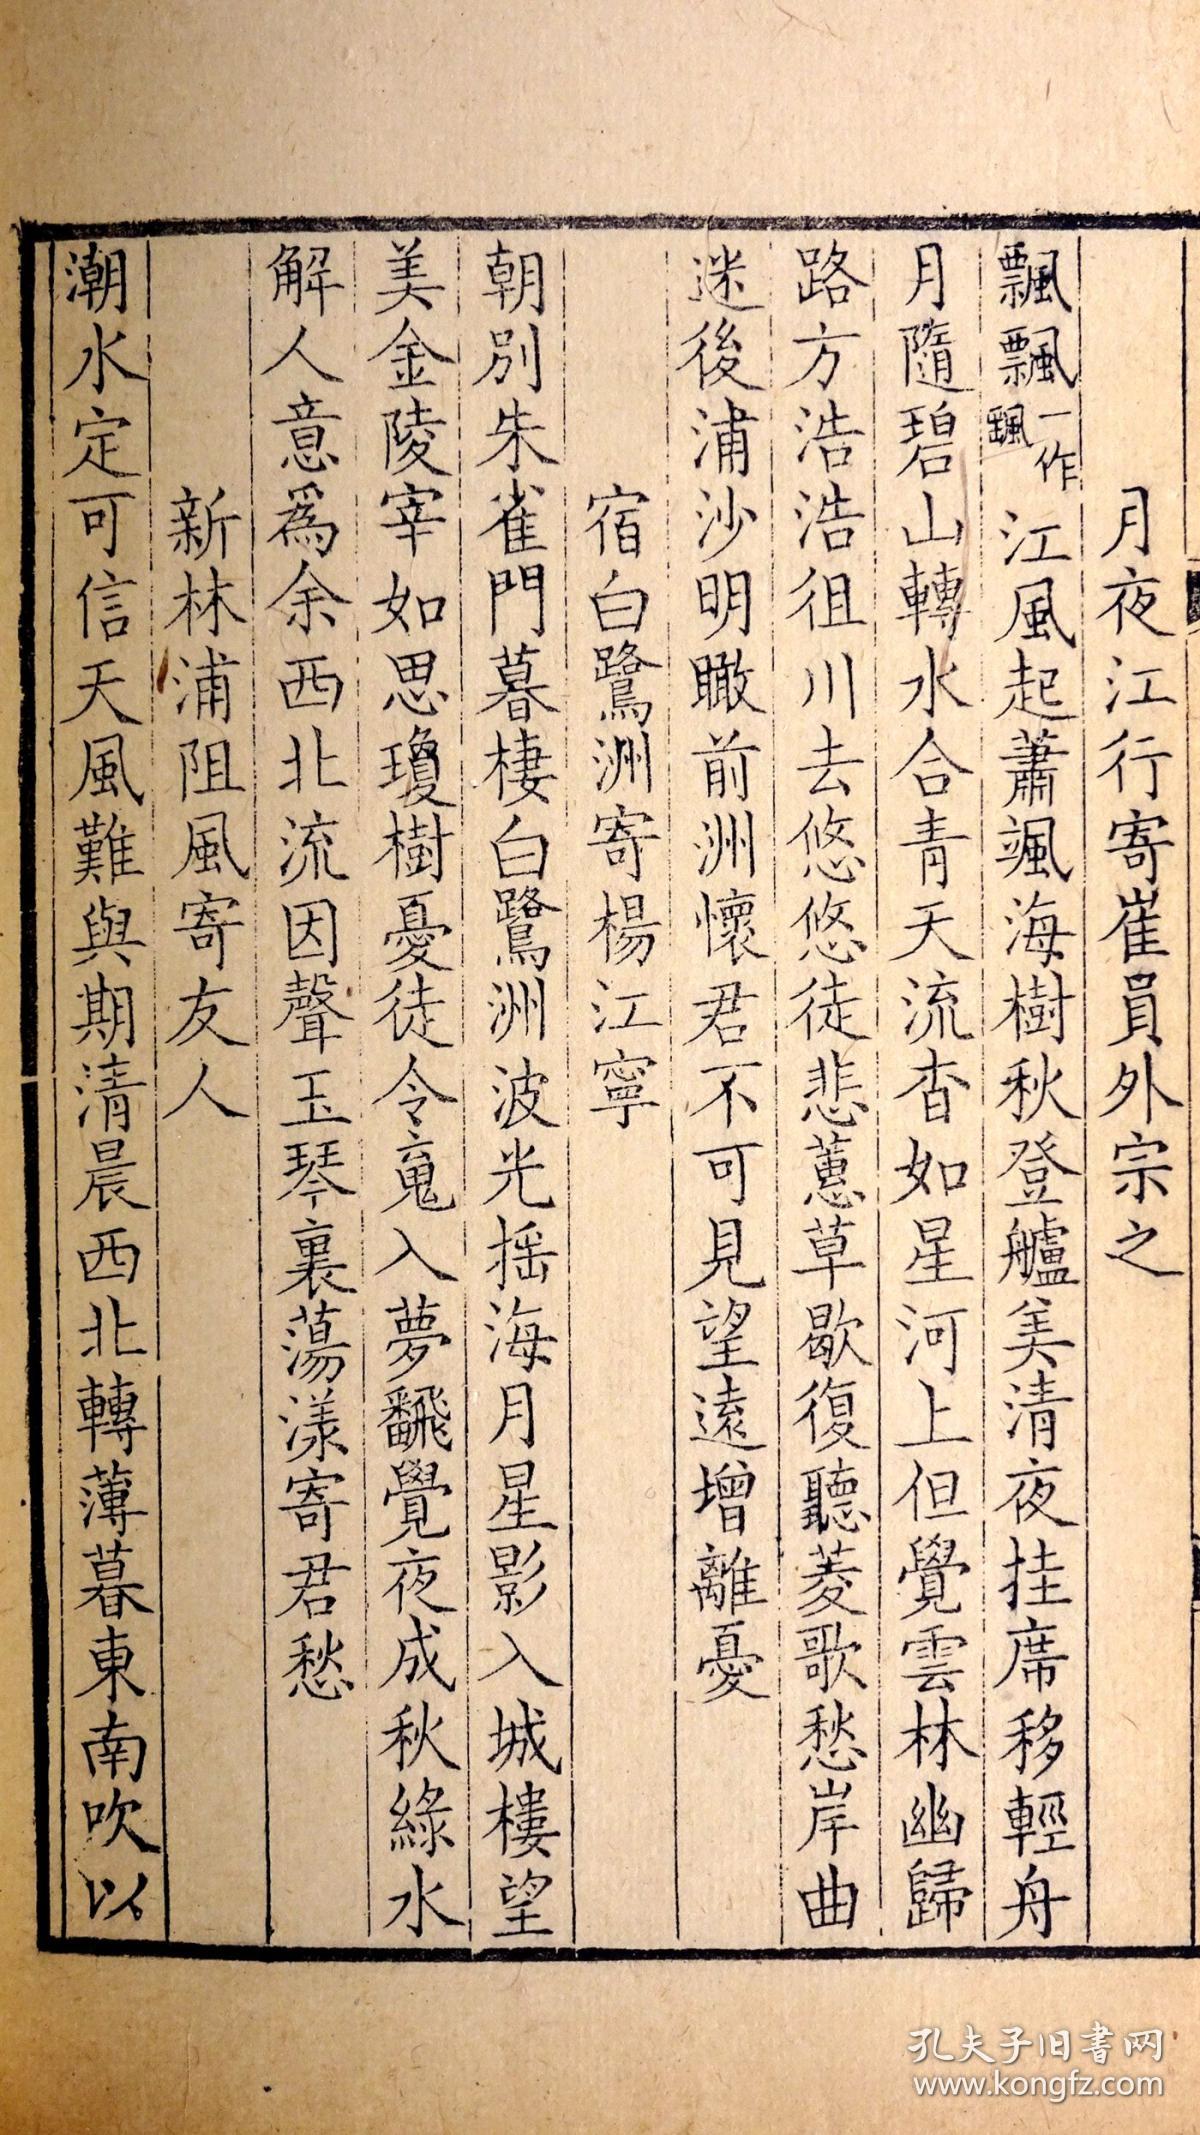 月夜江行寄崔員外宗之
飄飄一作颻江風起蕭颯海樹秋登艫美清夜挂席移輕舟
月隨碧山轉水合青天流杳如星河上但覺雲林幽歸
路方浩浩徂川去悠悠徒悲蕙草歇復聽菱歌愁岸曲
迷後浦沙明瞰前洲懷君不可見望遠增離憂
宿白鷺洲寄楊江寧
朝別朱雀門暮棲白鷺洲波光搖海月星影入城樓望
美金陵宰如思瓊樹憂徒令䰟入夢翻覺夜成秋綠水
解人意爲余西北流因聲玉琴裏蕩漾寄君愁
新林浦阻風寄友人
潮水定可信天風難與期清晨西北轉薄暮東南吹以
孔夫子旧书网
www.kongfz.com